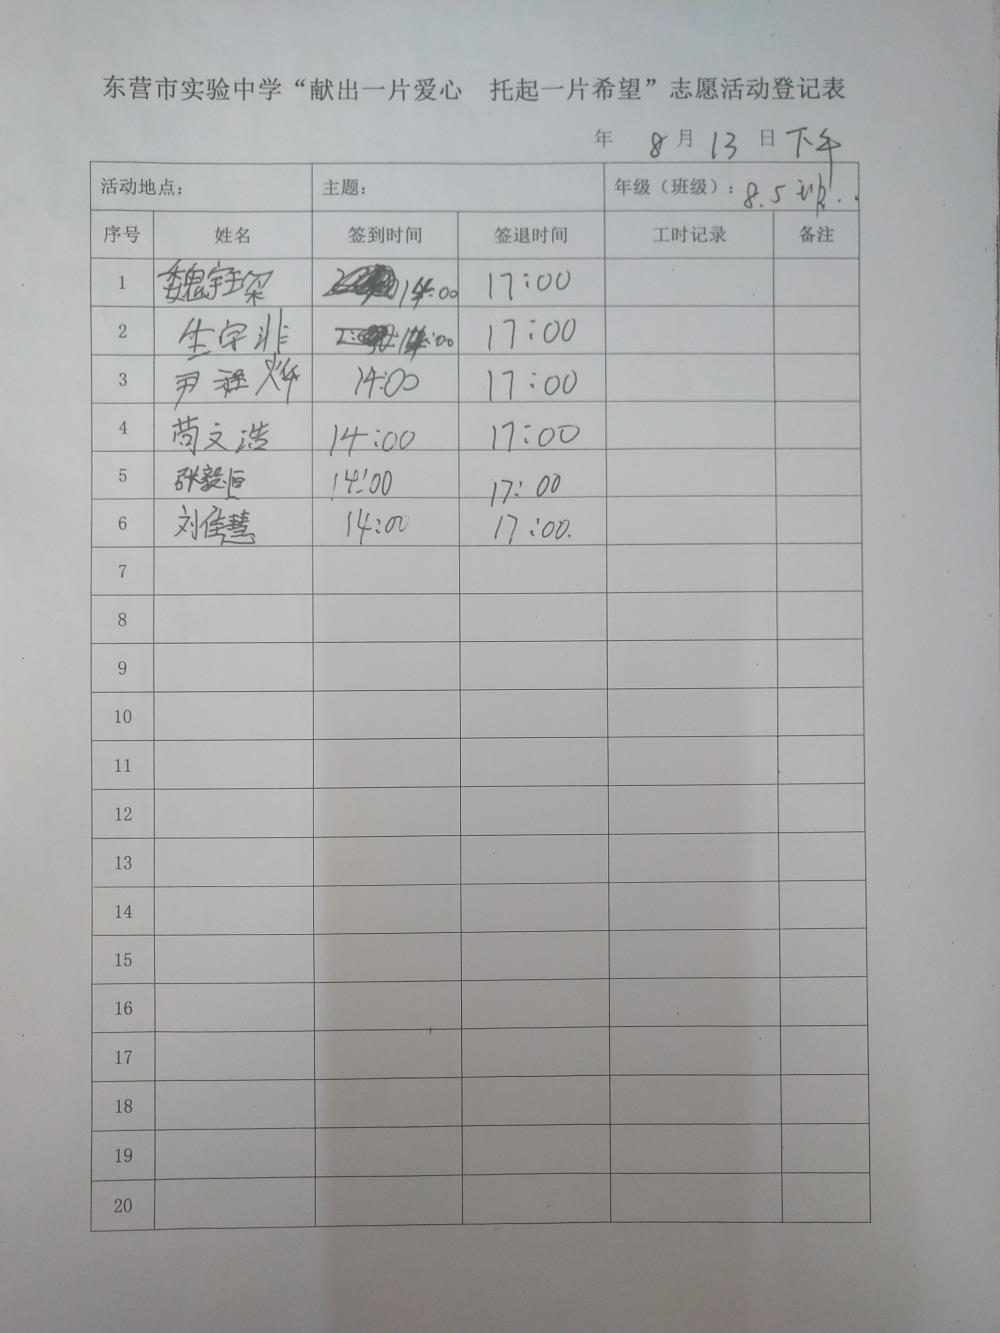 东营市实验中学“献出一片爱心　托起一片希望”志愿活动登记表
年 8 月 13 日 下午
活动地点： 主题： 年级（班级）：8.5班
序号 姓名 签到时间 签退时间 工时记录 备注
1 魏宇琛 14:00 17:00
2 生宇非 14:00 17:00
3 尹程烨 14:00 17:00
4 苟文浩 14:00 17:00
5 张毅恒 14:00 17:00
6 刘佳慧 14:00 17:00.
7
8
9
10
11
12
13
14
15
16
17
18
19
20